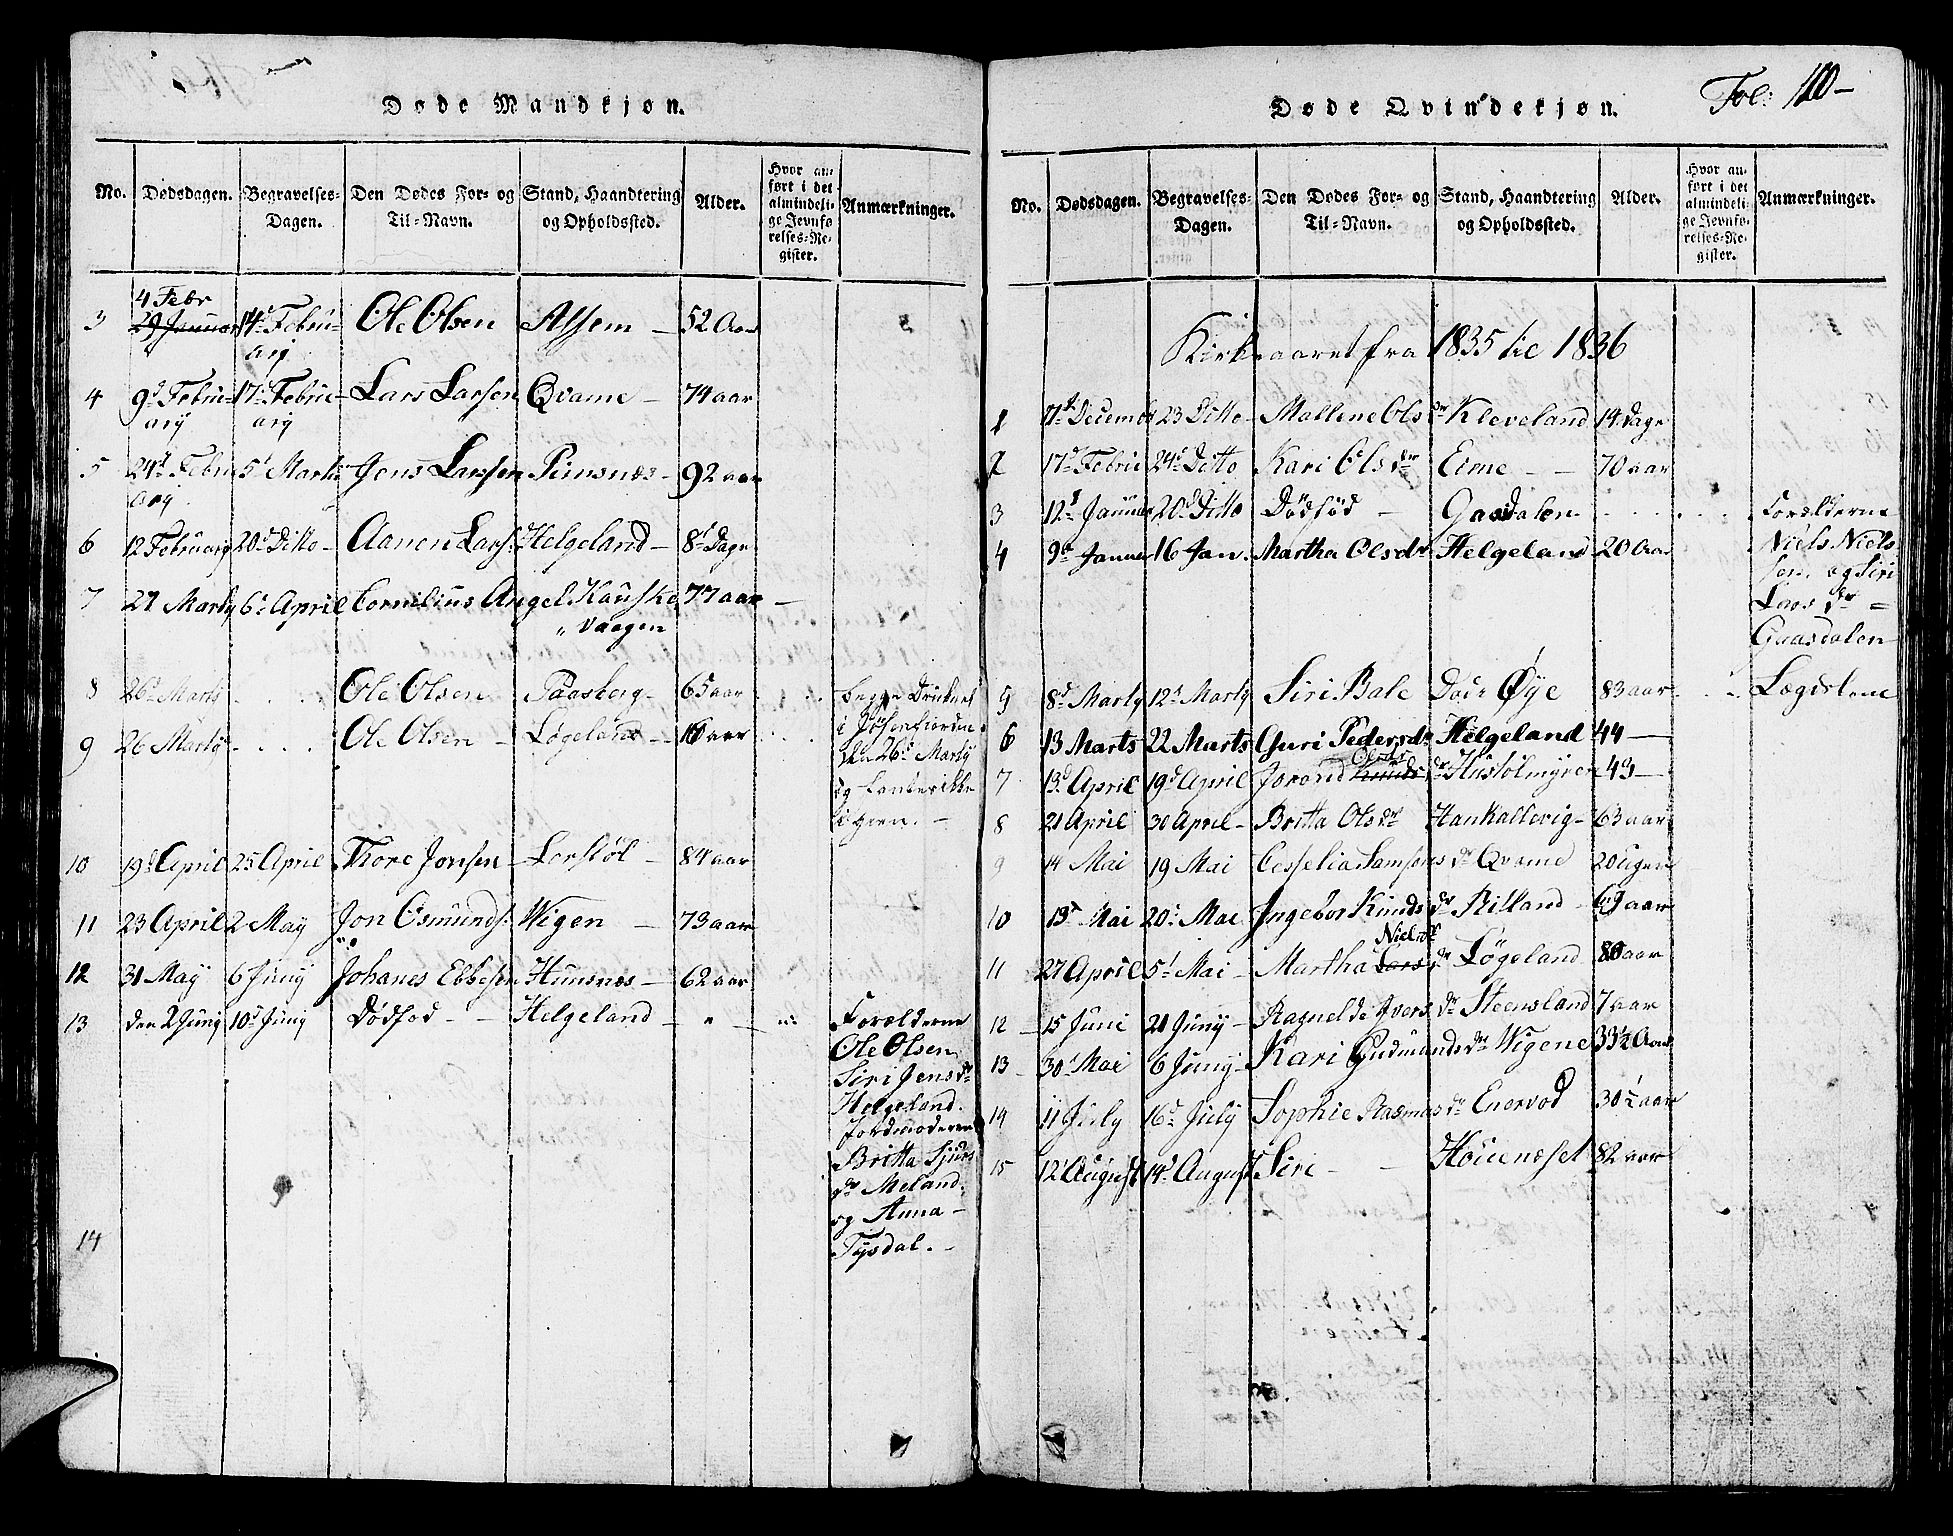 Døde Mandkjøn.
No. Dødsdagen. Begravelses-Dagen. Den Dødes For- og Til-Navn. Stand, Haandtering og Opholdssted. Alder. Hvor anført i det almindelige Jevnførelses-Register. Anmærkninger.
4 Febr
3 29 Januar 14d Februarij Ole Olsen Assem – 52 Aar
4 9d Februarij 17d Februarij Lars Larsen Qvame – 74 aar
5 24d Februarij 5t Martij Jens Larsen Timsnes – 92 aar
6 12 Februarij 20d Ditto – Aanen Lars: Helgeland – 8t Dage
7 27 Martij 6t April Cornilius Angel Hauske 77 aar –
vaagen
8 26d Martij Ole Olsen Taasberg – 65 aar
9 26 Martij Ole Olsen – Løgeland – 16 aar
begge Druknet
i Jøsenfjorden
den 26d Martij
og fantes ikke
igjen. –
10 19d April 25 April Thore Jonsen Lerstøl – 84 aar
11 23 April 2 May Jon Osmunds: Wigen – 73 aar
12 31 May 6 Junij Johanes Ebbesen Hunsnes – 62 aar
13 den 2 Junij 10d Junij Dødfød – – Helgeland –
Forælderne
Ole Olsen
Siri Jensdr
Helgeland.
Jordmoderen
Britta Sjurs
dr Meland.
og Anna –
Tysdal. –
14
Døde Qvindekjøn. Fol: 110 –
No. Dødsdagen. Begravelses-Dagen. Den Dødes For- og Til-Navn. Stand, Haandtering og Opholdssted. Alder. Hvor anført i det almindelige Jevnførelses-Register. Anmærkninger.
Kirkeaaret fra 1835 til 1836
1 17d Decemb 23 Ditto – Mallene Ols dr Kleveland 14 Dage
2 17d Febru 24d Ditto Kari Olsdr Eime – – 70 aar
3 12d Januar 20d Ditto Dødfød – Gaasdalen
4 9d Januar 16 Jan. Martha Olsdr Helgeland 20 Aar
Forælderne
Niels Niels
sen og Siri
Lars dr =
Gaasdalen
5 8d Martij 12d Martij Siri Bale Dode Øye 83 aar Lægdslem
6 13 Marts 22 Marts Guri Pedersdr Helgeland 44 –
Olsdr
7 13d April 19d April Jorond Knuds dr Hustølmyren 43 –
8 21 April 30 April – Britta Olsdr Hankallevig – 63 aar
9 14 Mai 19 Mai Cesselia Samsons dr Qvame 20 Ugen
10 13d Mai 20d Mai Ingebor Knuds dr Ritland – 69 aar
Nielsdr
11 27 April 5t Mai – Martha Lars dr Løgeland 80 aar
12 15 Juni 21 Junij – Ragnelde Ivers dr Steensland 7 aar
13 30t Mai 6 Junij – Kari Gudmunds dr Wigene 33½ Aar
14 11 July 16d July Sophie Rasmus dr Enervod 30½ aar
15 12t August 14d August Siri – – 82 aar